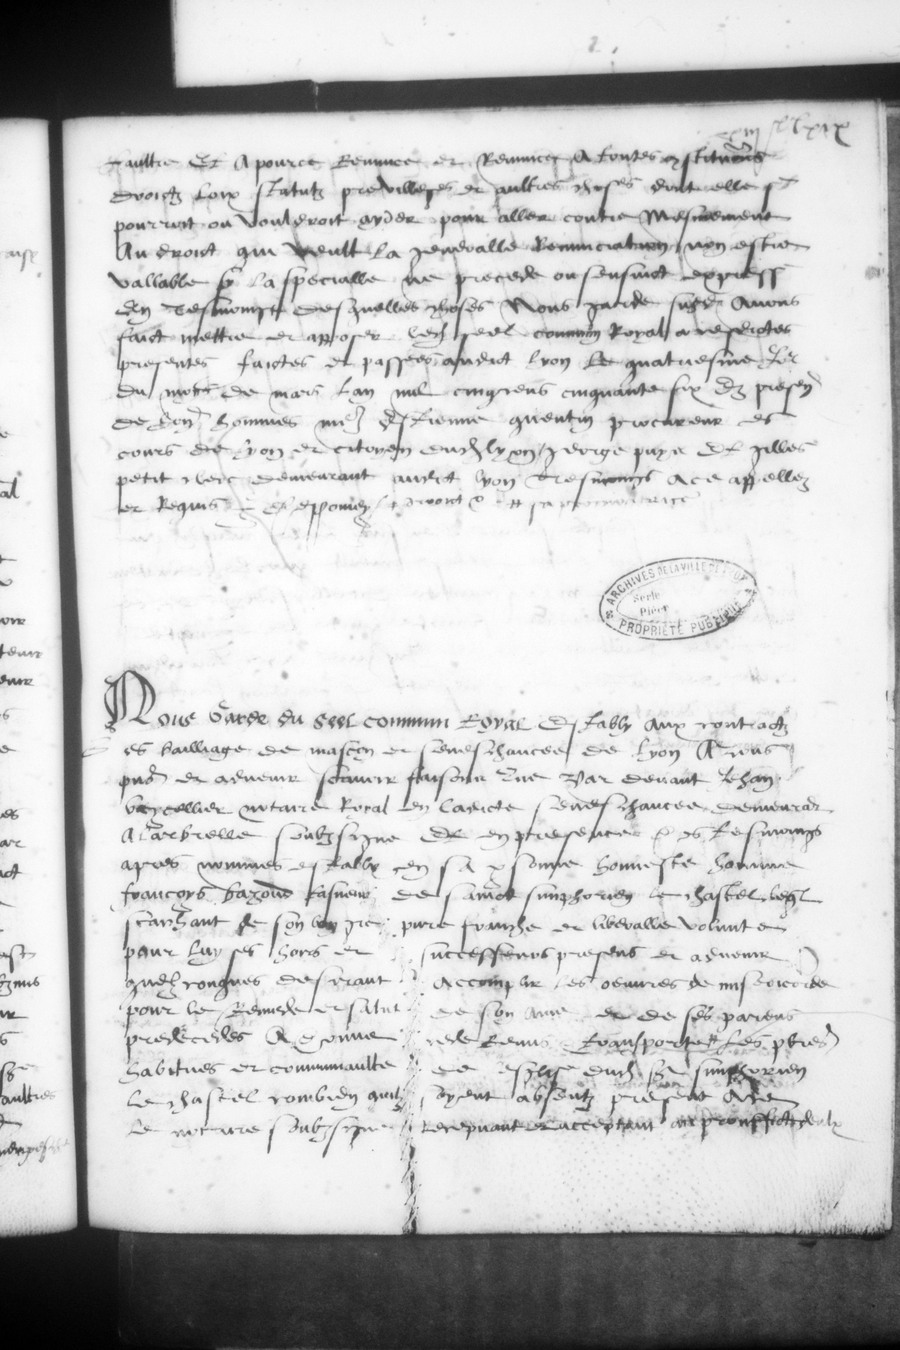 faultre Et a pource Renunce et Renuncer a toutes
droictz loix statutz previlleges et aultres choses
pourroit ou vouldroit ayder pour aller contre mesmement
Au droict qui veult la generalle Renunciation non estre
vallable sy la specialle ne precede ou sensuict expresse
En tesmoing desquelles choses Nous garde susdit Avons
faict mettre et apposer ledit seel commun Royal a cesdictes
presentes faictes et passees audict lyon Le quatriesme Jor
du moys de mars Lan mil cinq cens cinquante six Es presen
de hommes me Estienne quentin procureur es
cours de Lyon et citoyen dudit lyon george Et gilles
petit clerc demeurant audict lyon tesmoings Ace appellez
et Requis
ARCHIVES DE LA VILLE DE LYON
Serie
Pièce
PROPRIÉTÉ PUBLIQUE
Nous Garde du Seel commun Royal Estably aux contractz
es bailliage de mascon et seneschaucee de Lyon A tous
et advenir scavoir faisons Que Par devant Jehan
notaire Royal en ladicte seneschaucee demeurant
A Larbrelle soubzsigne Et en presence des tesmoings
apres nommes estably en sa personne honneste homme
francoys de sainct simphorien le chastel leql
scaichant de son bon gre pure franche et liberalle volunte
pour luy ses hoirs et successeurs presens et advenir
quelzconques desirant accomplir les oeuvres de misericorde
pour le Remede et salut de son ame et de ses parens
predecedes A donne cede Remis transporte Les pbres
habitues et communaulte de esglise dudit St simphorien
le chastel combien quilz soyent absentz present Moy
le notaire soubzsigne Recepvant et acceptant au prouffict deulx